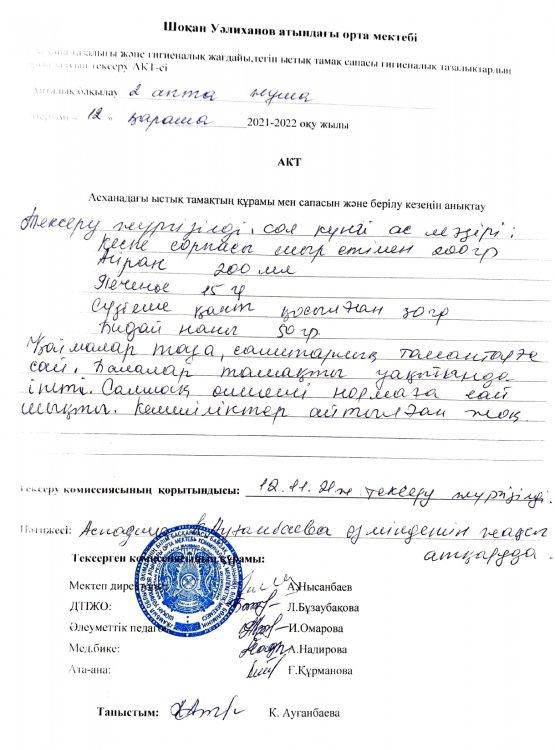 Шоқан Уәлиханов атындағы орта мектебі
тазалығы және гигиеналық жағдайы,тегін ыстық тамақ сапасы гигиеналық тазалықтардын
тексеру АКТ-сі
Апталық бақылау 2 апта жұма
12 қараша 2021-2022 оқу жылы
АКТ
Асханадағы ыстық тамақтың құрамы мен сапасын және берілу кезеңін анықтау
Тексеру жүргізілді, сол күнгі ас мәзірі:
Кеспе сорпасы сиыр етімен 200гр
Айран 200 мл
Печенье 15 гр
Сүзбеше қант қосылған 30 гр
Бидай наны 50 гр
таза, санитарлық талаптарға
сай. Балалар тамақты уақытында
ішті. Салмақ өлшемі нормаға сай
шықты. Кемшіліктер айтылған жоқ.
Тексеру комиссиясының қорытындысы: 12.11.21ж. тексеру жүргізілді.
Нәтижесі: Аспазшы өз міндетін жақсы
атқаруда.
Тексерген комиссиясының құрамы:
Мектеп директоры А.Нысанбаев
ДТІЖО: Л.Бұзаубакова
Әлеуметтік педагог И.Омарова
Мед.бике: А.Надирова
Ата-ана: Ғ.Құрманова
Таныстым: К. Ауганбаева